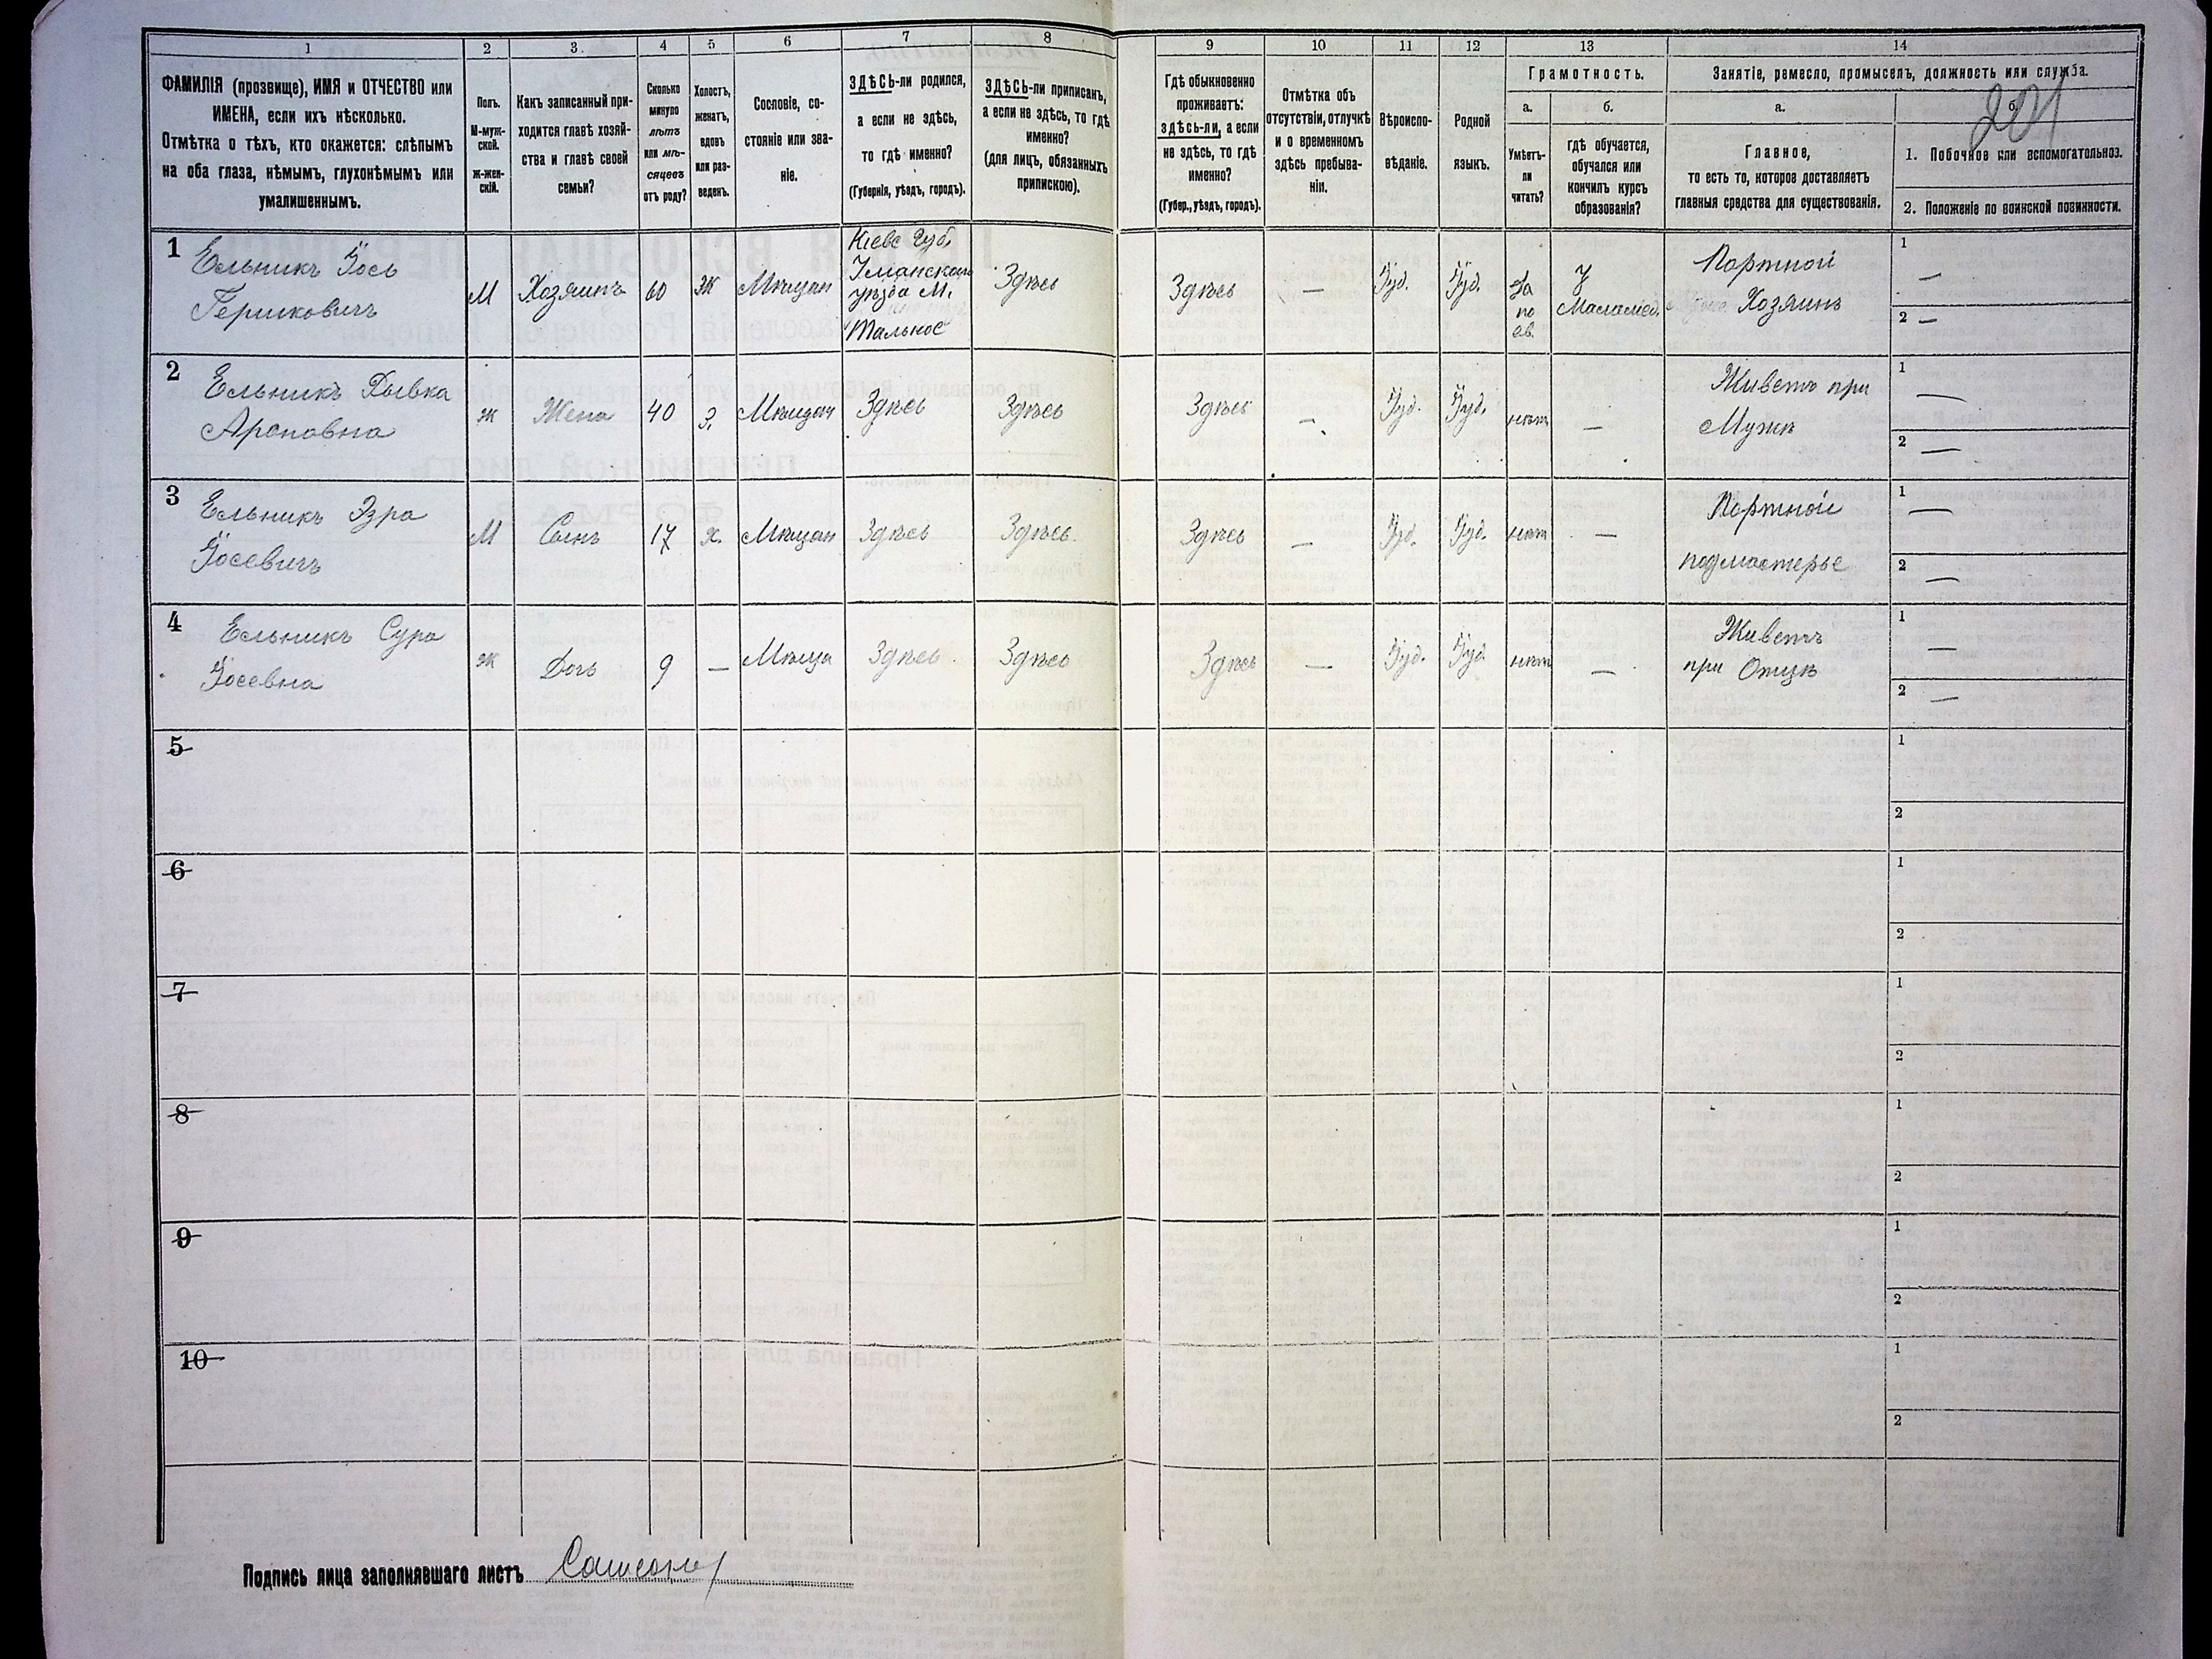 1 2 3 4 5 6 7 8 9 10 11 12 13 14
ФАМИЛІЯ (прозвище), ИМЯ и ОТЧЕСТВО или
ИМЕНА, если ихъ нѣсколько.
Отмѣтка о тѣхъ, кто окажется: слѣпымъ
на оба глаза, нѣмымъ, глухонѣмымъ или
умалишеннымъ.
Полъ.
М-муж-
ской.
ж-жен-
скій.
Какъ записанный при-
ходится главѣ хозяй-
ства и главѣ своей
семьи?
Сколько
минуло
лѣтъ
или мѣ-
сяцевъ
отъ роду?
Холостъ,
женатъ,
вдовъ
или раз-
веденъ.
Сословіе, со-
стояніе или зва-
ніе.
ЗДѢСЬ-ли родился,
а если не здѣсь,
то гдѣ именно?
(Губернія, уѣздъ, городъ).
ЗДѢСЬ-ли приписанъ,
а если не здѣсь, то гдѣ
именно?
(для лицъ, обязанныхъ
припискою).
Гдѣ обыкновенно
проживаетъ:
здѣсь-ли, а если
не здѣсь, то гдѣ
именно?
(Губер., уѣздъ, городъ).
Отмѣтка объ
отсутствіи, отлучкѣ
и о временномъ
здѣсь пребыва-
ніи.
Вѣроиспо-
вѣданіе.
Родной
языкъ.
Грамотность.
а. б.
Умѣетъ-
ли
читать?
гдѣ обучается,
обучался или
кончилъ курсъ
образованія?
Занятіе, ремесло, промыселъ, должность или служба.
а. б.
201
Главное,
то есть то, которое доставляетъ
главныя средства для существованія.
1. Побочное или вспомогательное.
2. Положеніе по воинской повинности.
1
Ельникъ Іось
Гершковичъ
М
Хозяинъ
60
Ж
Мѣщан
Кіевс Губ.
Уманскаго
уѣзда М.
Тальное
Здѣсь
Здѣсь
—
Іуд.
Іуд.
Да
по
ев.
У
Маламед.
Портной
Хозяинъ
1 —
2 —
2
Ельникъ Рывка
Ароновна
Ж
Жена
40
З.
Мѣщан
Здѣсь
Здѣсь
Здѣсь
—
Іуд.
Іуд.
нѣт
—
Живетъ при
Мужѣ
1 —
2 —
3
Ельникъ Эзра
Іосевичъ
М
Сынъ
17
х.
Мѣщан
Здѣсь
Здѣсь
Здѣсь
—
Іуд.
Іуд.
нѣт
—
Портной
подмастерье
1 —
2 —
4
Ельникъ Сура
Іосевна
Ж
Дочь
9
—
Мѣща
Здѣсь
Здѣсь
Здѣсь
—
Іуд.
Іуд.
нѣт
—
Живетъ
при Отцѣ
1 —
2 —
5
1
2
6
1
2
7
1
2
8
1
2
9
1
2
10
1
2
Подпись лица заполнявшаго листъ